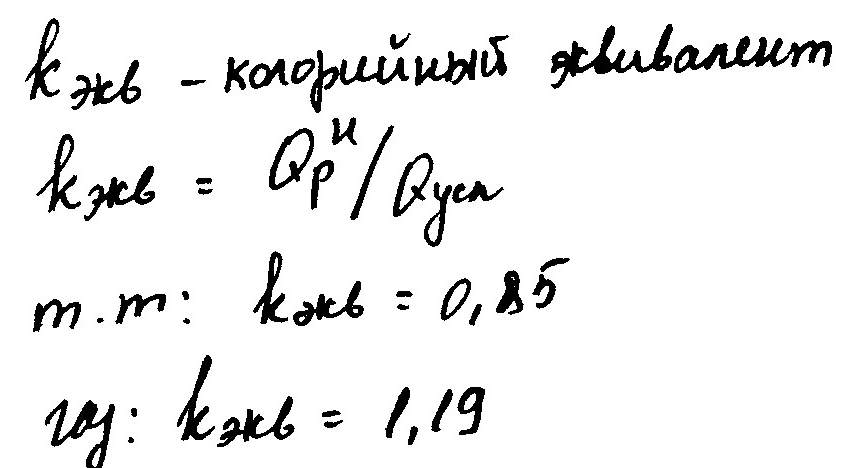 kэкв – колорийный эквивалент
kэкв = Qрн/Qусл
т.т: kэкв = 0,85
газ: kэкв = 1,19